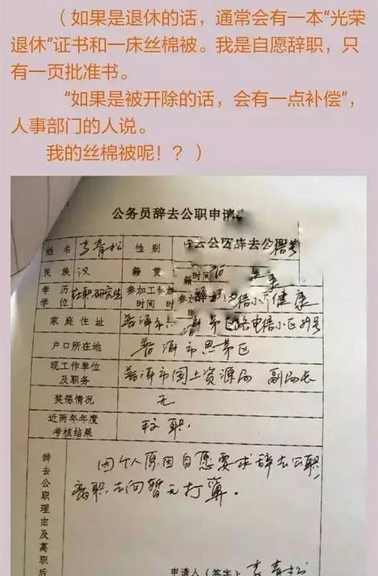 （如果是退休的话，通常会有一本“光荣
退休”证书和一床丝棉被。我是自愿辞职，只
有一页批准书。
“如果是被开除的话，会有一点补偿”，
人事部门的人说。
我的丝棉被呢！？）
公务员辞去公职申请
姓名 李青松 性别
民族 汉 籍贯
学历 在职研究生 参加工作 健康
学位 时间
家庭住址 普洱市
户口所在地 普洱市思茅区
现工作单位 普洱市国土资源局 副局长
及职务
奖惩情况 无
近两年年度 称职。
考核结果
辞去公职理由及离职后
因个人原因自愿要求辞去公职，
离职去向暂无打算。
申请人（签字） 李青松